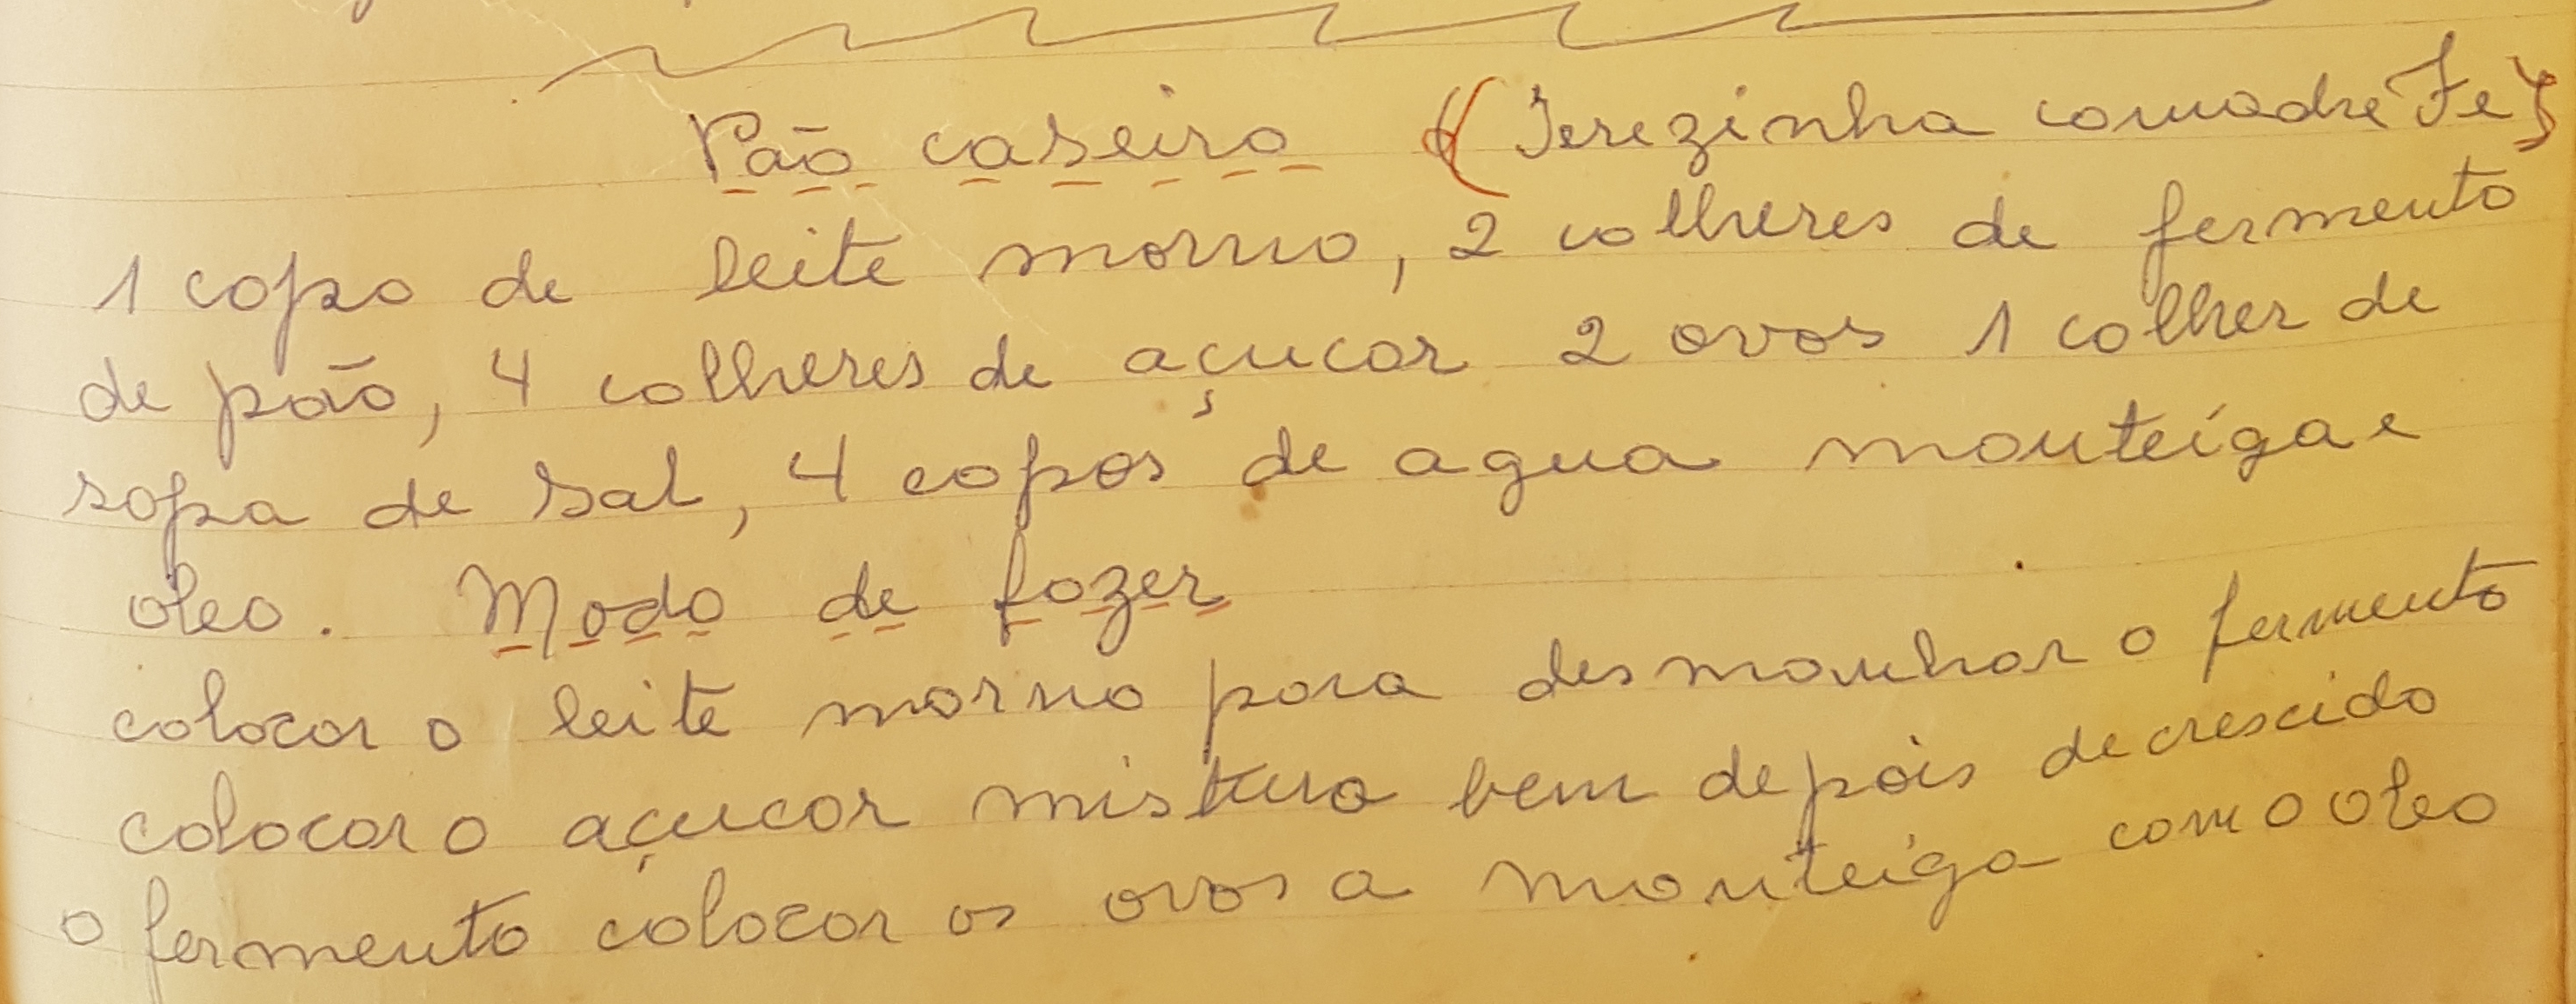 Pão caseiro (Terezinha comadre Fe)
1 copo de leite morno, 2 colheres de fermento
de pão, 4 colheres de açucar 2 ovos 1 colher de
sopa de sal, 4 copos de agua manteiga e
oleo. Modo de fazer
colocar o leite morno para desmanchar o fermento
colocar o açucar mistura bem depois de crescido
o fermento colocar os ovos a manteiga com o oleo